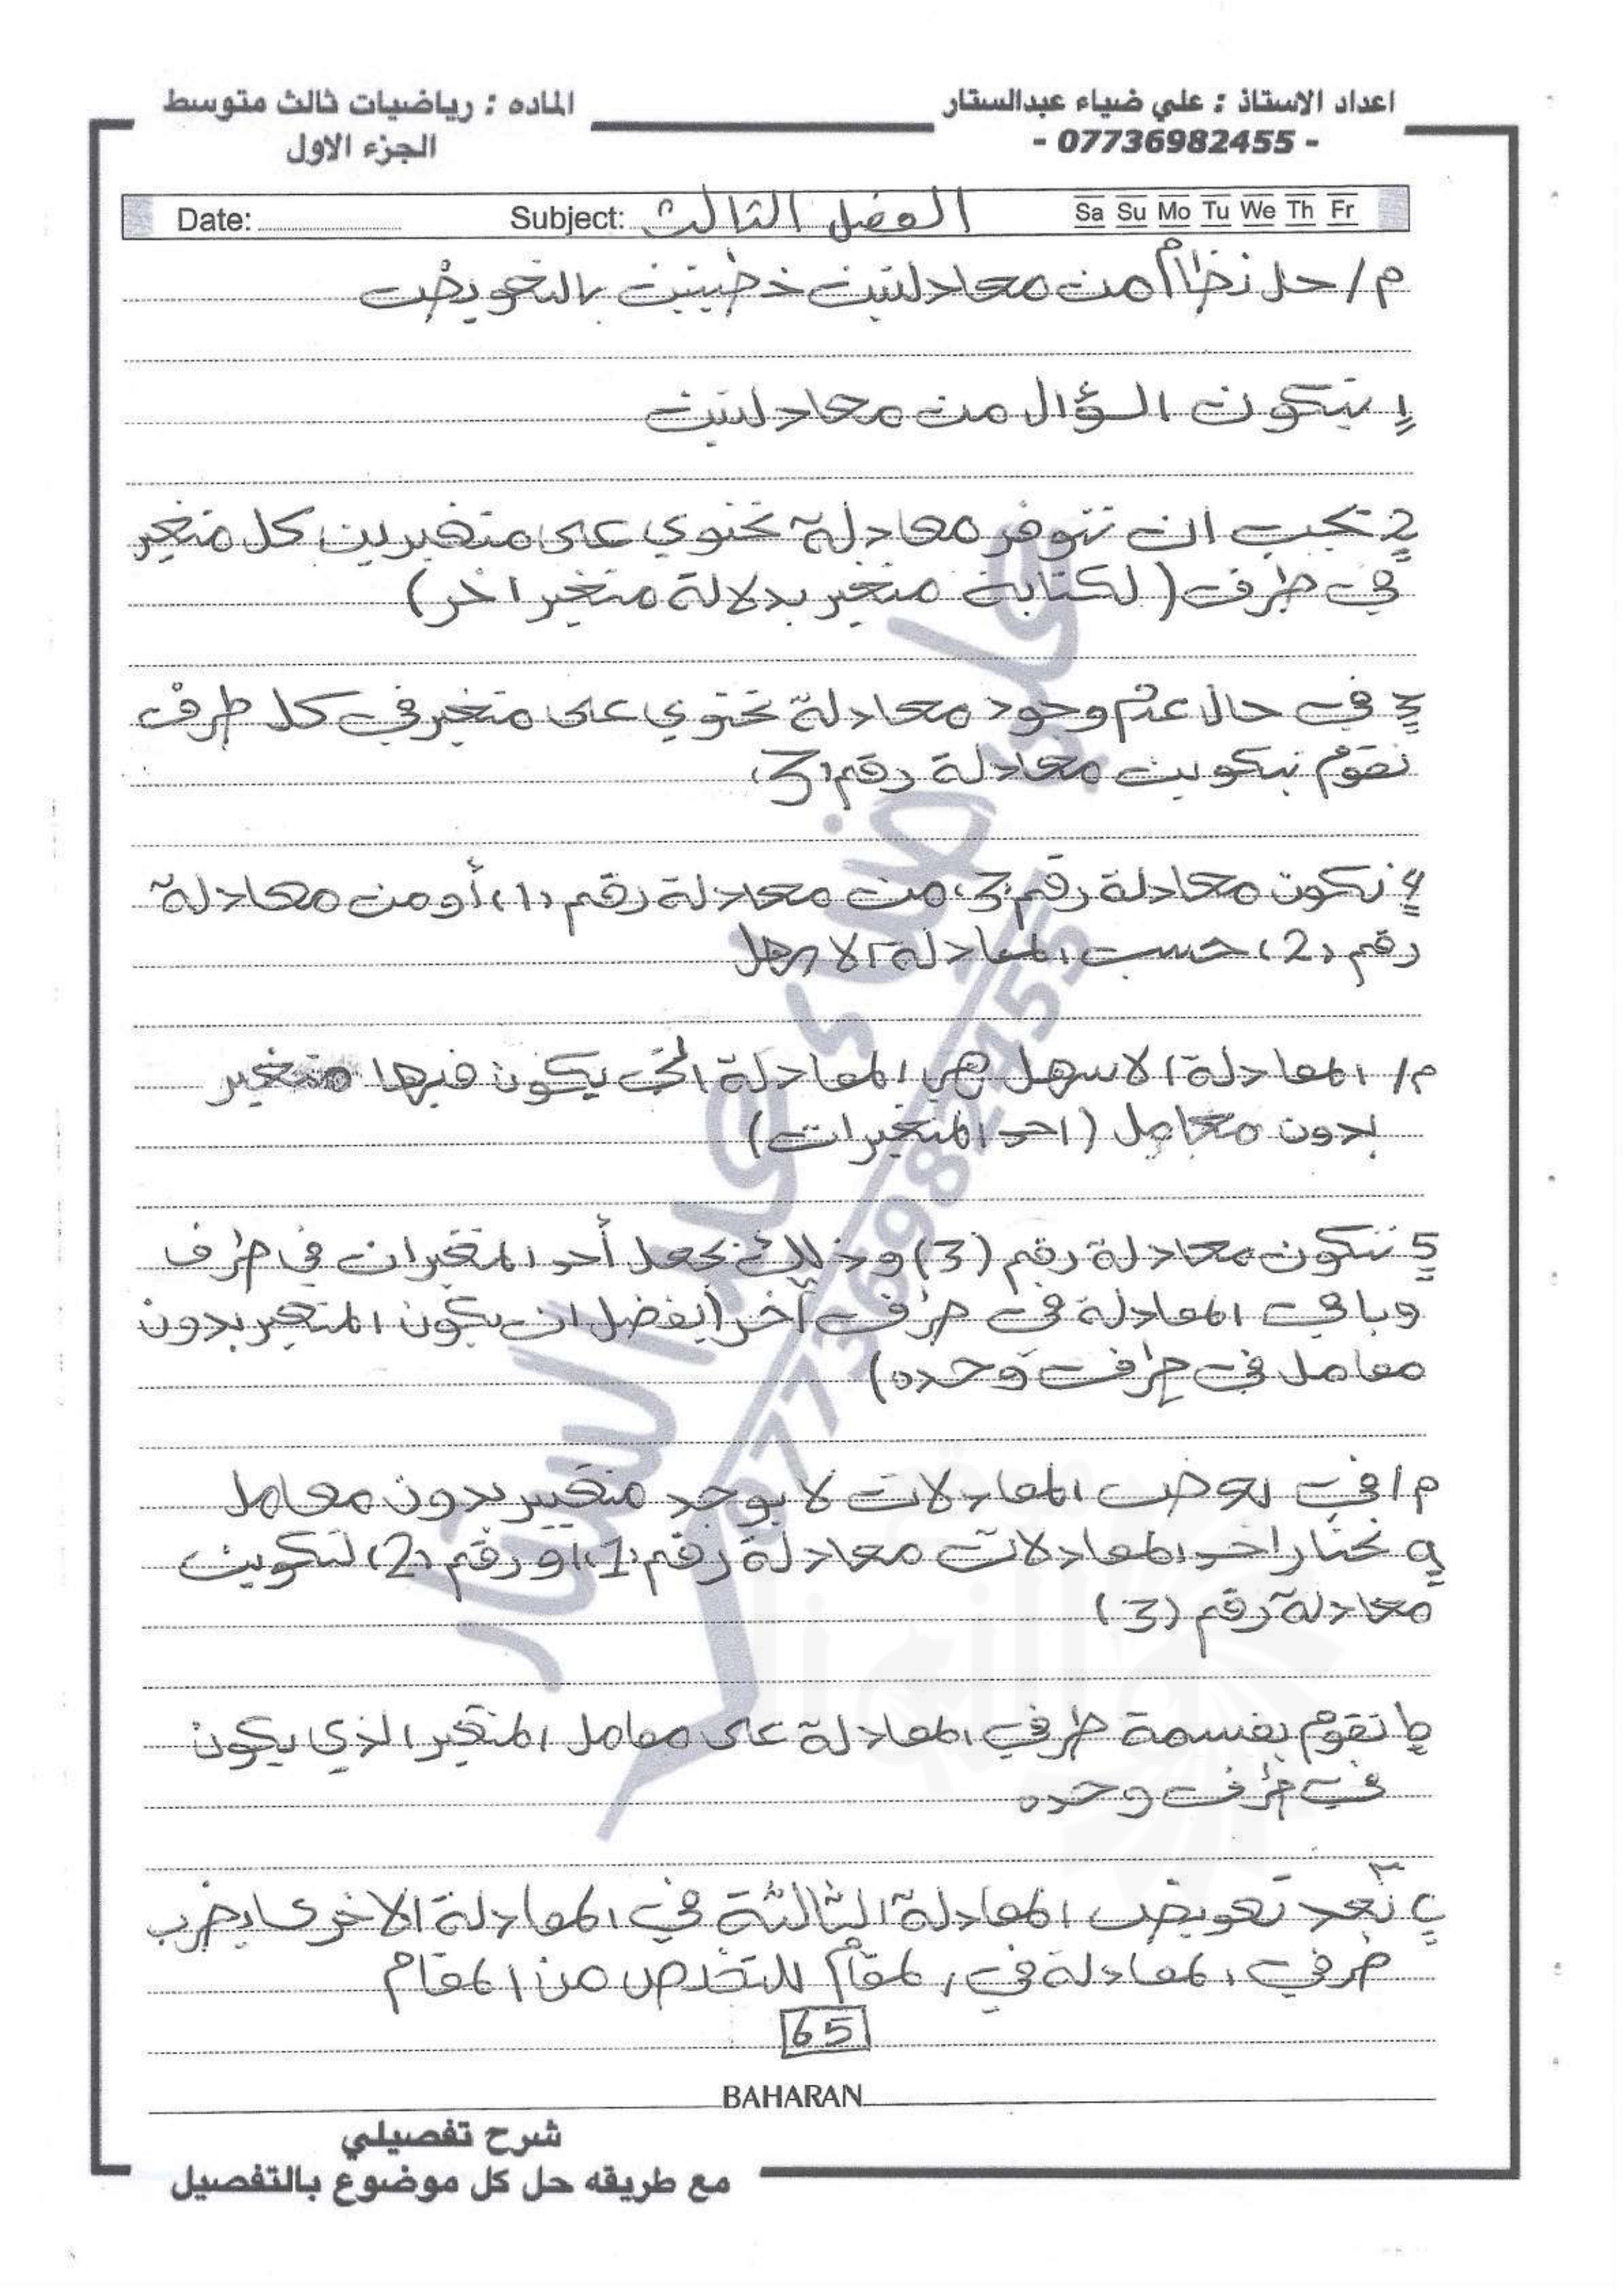 اعداد الاستاذ : علي ضياء عبدالستار
- 07736982455 -
الماده : رياضيات ثالث متوسط
الجزء الاول
Date: Subject: الفصل الثالث Sa Su Mo Tu We Th Fr
م/ حل نظام من معادلتين خطيتين بالتعويض
1 يتكون السؤال من معادلتين
2 يجب ان تتوفر معادلة تحتوي على متغيرين كل متغير
في طرف (لكتابة متغير بدلالة متغير اخر)
3 في حال عدم وجود معادلة تحتوي على متغير في كل طرف
نقوم بتكوين معادلة رقم (3)
4 نكون معادلة رقم (3) من معادلة رقم (1) أو من معادلة
رقم (2) حسب المعادلة الاسهل
م/ المعادلة الاسهل هي المعادلة التي يكون فيها متغير
بدون معامل (احد المتغيرات)
5 نتكون معادلة رقم (3) وذلك بجعل أحد المتغيران في طرف
وباقي المعادلة في طرف آخر (يفضل ان يكون المتغير بدون
معامل في طرف وحده)
م/ في بعض المعادلات لا يوجد متغير بدون معامل
و نختار احد المعادلات معادلة رقم (1) او رقم (2) لتكوين
معادلة رقم (3)
ط نقوم بقسمة طرفي المعادلة على معامل المتغير الذي يكون
في طرف وحده
ب بعد تعويض المعادلة الثالثة في المعادلة الاخرى يضرب
طرفي المعادلة في المقام للتخلص من المقام
65
BAHARAN
شرح تفصيلي
مع طريقه حل كل موضوع بالتفصيل
علي ضياء عبد الستار
07736982455